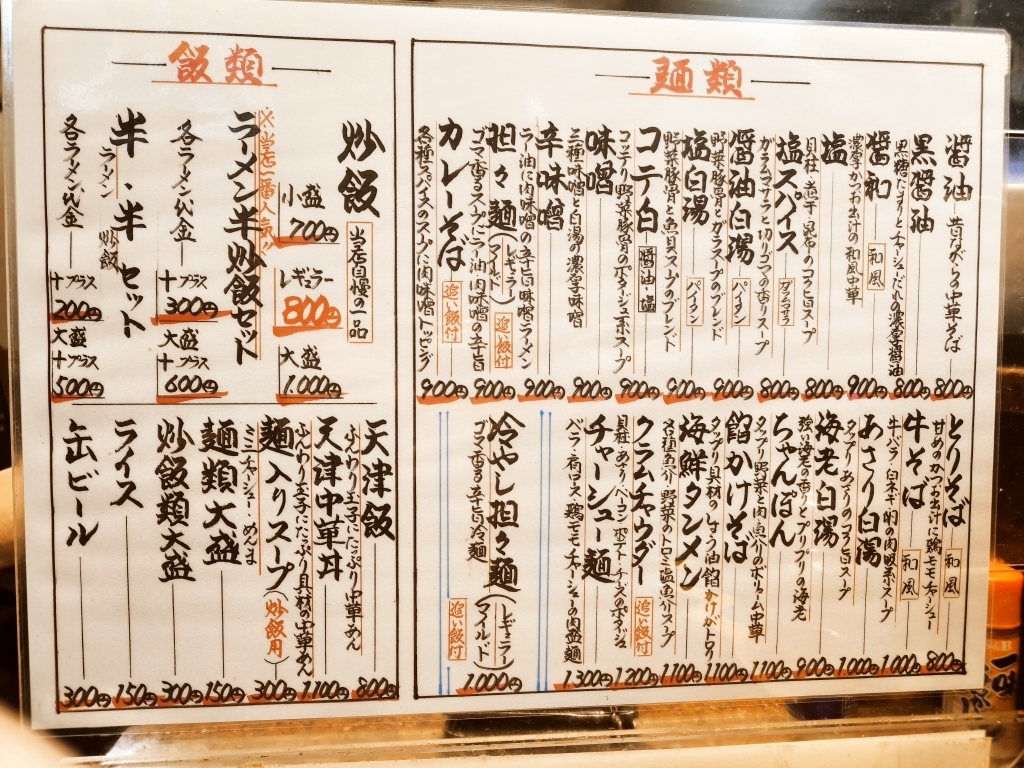 麺類
醤油 昔ながらの中華そば 800円
黒醤油 800円
黒糖たまりとチャーシューだれの濃厚醤油
醤和 和風 900円
濃厚かつお出汁の和風中華
塩 800円
貝柱 煮干 昆布のコクと旨スープ
塩スパイス ガラムマサラ 800円
ガラムマサラと切りゴマの香りスープ
醤油白湯 パイタン 900円
野菜豚骨とガラスープのブレンド
塩白湯 パイタン 900円
野菜豚骨と魚貝スープのブレンド
コテ白 醤油 塩 900円
コテリ野菜豚骨のポタージュ系スープ
味噌 900円
三種味噌と白湯の濃厚味噌
辛味噌 900円
ラー油に肉味噌の辛旨味噌ラーメン
担々麺 (レギュラー マイルド) 追い飯付 900円
ゴマ香るスープにラー油・肉味噌の辛旨
カレーそば 追い飯付 900円
各種スパイスのスープに肉味噌トッピング
とりそば 和風 800円
甘めのかつお出汁に鶏モモチャーシュー
牛そば 和風 1,000円
牛バラ・白ネギ・卵の肉吸系スープ
あさり白湯 1,000円
タップリあさりのコク旨スープ
海老白湯 900円
強い海老の香りとプリプリの海老
ちゃんぽん 1,100円
タップリ野菜と肉・魚入りのボリューム中華
餡かけそば 1,100円
タップリ具材のしょう油餡かけがトロリ
海鮮タンメン 1,100円
各種魚介・野菜のトロミ塩魚介スープ
クラムチャウダー 追い飯付 1,200円
貝柱・あさり・ベーコン・ポテト・チーズのポタージュ
チャーシュー麺 1,300円
バラ・肩ロース・鶏モモチャーシューの肉盛麺
冷やし担々麺 (レギュラー マイルド) 追い飯付 1,000円
ゴマ香る辛旨冷麺
飯類
炒飯 当店自慢の一品
小盛 700円
レギュラー 800円
大盛 1,000円
※当店一番人気!!
ラーメン半炒飯セット
各ラーメン代金
+プラス 300円
大盛
+プラス 600円
半・半セット
ラーメン 炒飯
各ラーメン代金
+プラス 200円
大盛
+プラス 500円
天津飯 800円
ふんわり玉子にたっぷり中華あん
天津中華丼 1,100円
ふんわり玉子にたっぷり具材の中華あん
麺入りスープ (炒飯用) 300円
ミニチャーシュー・めんま
麺類大盛 150円
炒飯類大盛 300円
ライス 150円
缶ビール 300円